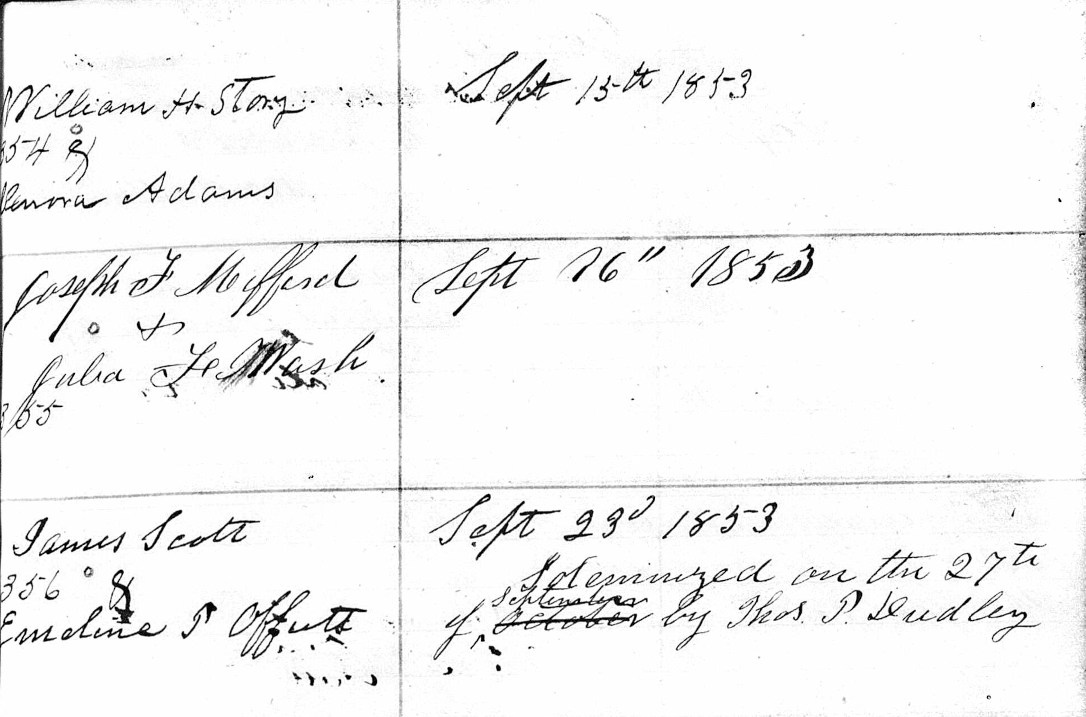 William H Story
354 &
Lenora Adams
Sept 15th 1853
Joseph F Mefford
&
Julia F Wash
355
Sept 16" 1853
James Scott
356 &
Emeline P Offutt
Sept 23d 1853
Solemnized on the 27th
September
of October by Thos. P. Dudley